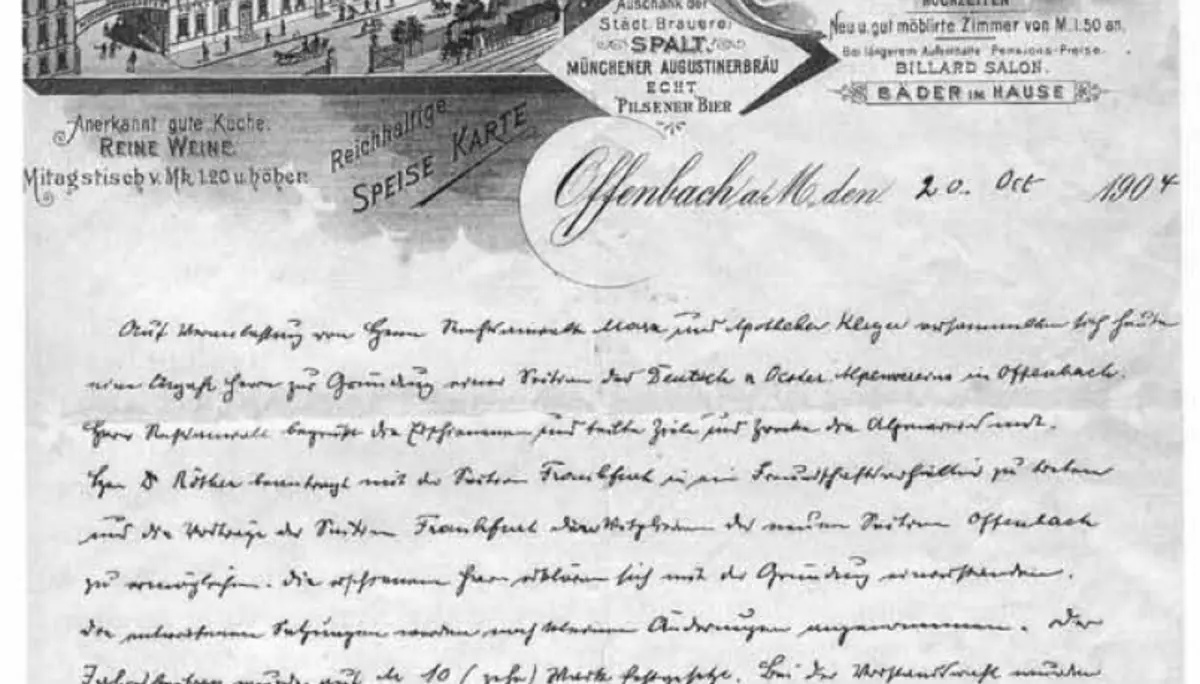 Auschank der
Städt. Brauerei
SPALT.
MÜNCHENER AUGUSTINERBRÄU
ECHT
PILSENER BIER
HOCHZEITEN
Neu u. gut möblirte Zimmer von M. 1.50 an.
Bei längerem Aufenthalte Pensions-Preise.
BILLARD SALON.
BÄDER IM HAUSE
Anerkannt gute Küche.
REINE WEINE.
Mitagstisch v. Mk 1.20 u. höher.
Reichhaltige
SPEISE KARTE
Offenbach a. M. den 20. Oct 1904
Auf Veranlassung von Herrn Rechtsanwalt und Apotheker versammelten sich heute
eine Anzahl Herren zur Gründung einer Section des Deutsch u Oester Alpenvereins in Offenbach.
Herr Rechtsanwalt begrüßt die Erschienenen und teilte Ziele und Zwecke des Alpenvereins mit.
Herr Dr Röther beantragt mit der Section Frankfurt in ein Freundschaftsverhältnis zu treten
und die Vorträge der Section Frankfurt den Mitgliedern der neuen Section Offenbach
zu ermöglichen. Die erschienenen Herren erklären sich mit der Gründung einverstanden.
Die entworfenen Satzungen werden nach kleinen Änderungen angenommen. Der
Jahresbeitrag wurde auf 10 (zehn) Mark festgesetzt. Bei der Vorstandswahl wurden